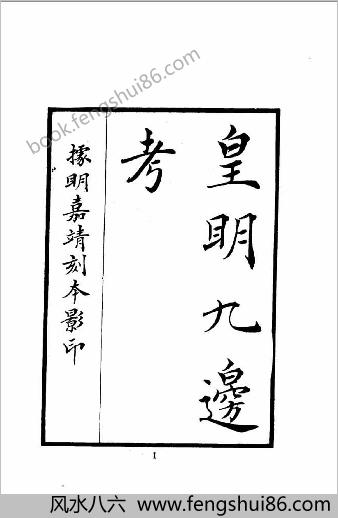 皇明九邊
考
據明嘉靖刻本影印
1
book.fengshui86.com
风水八六 www.fengshui86.com